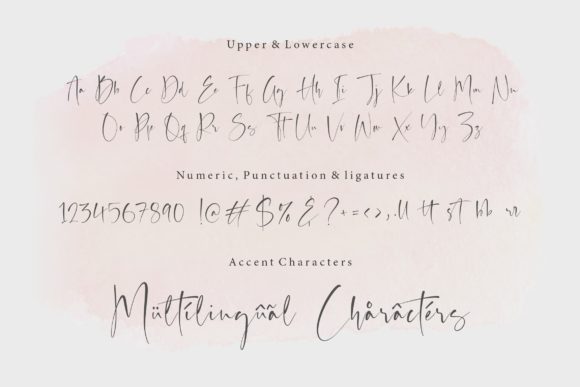 Upper & Lowercase
Aa Bb Cc Dd Ee Ff Gg Hh Ii Jj Kk Ll Mm Nn
Oo Pp Qq Rr Ss Tt Uu Vv Ww Xx Yy Zz
Numeric, Punctuation & ligatures
1234567890 !@#$%&?+=<>,.ll tt st bb rr
Accent Characters
Mültílingûãl Chåràctérs